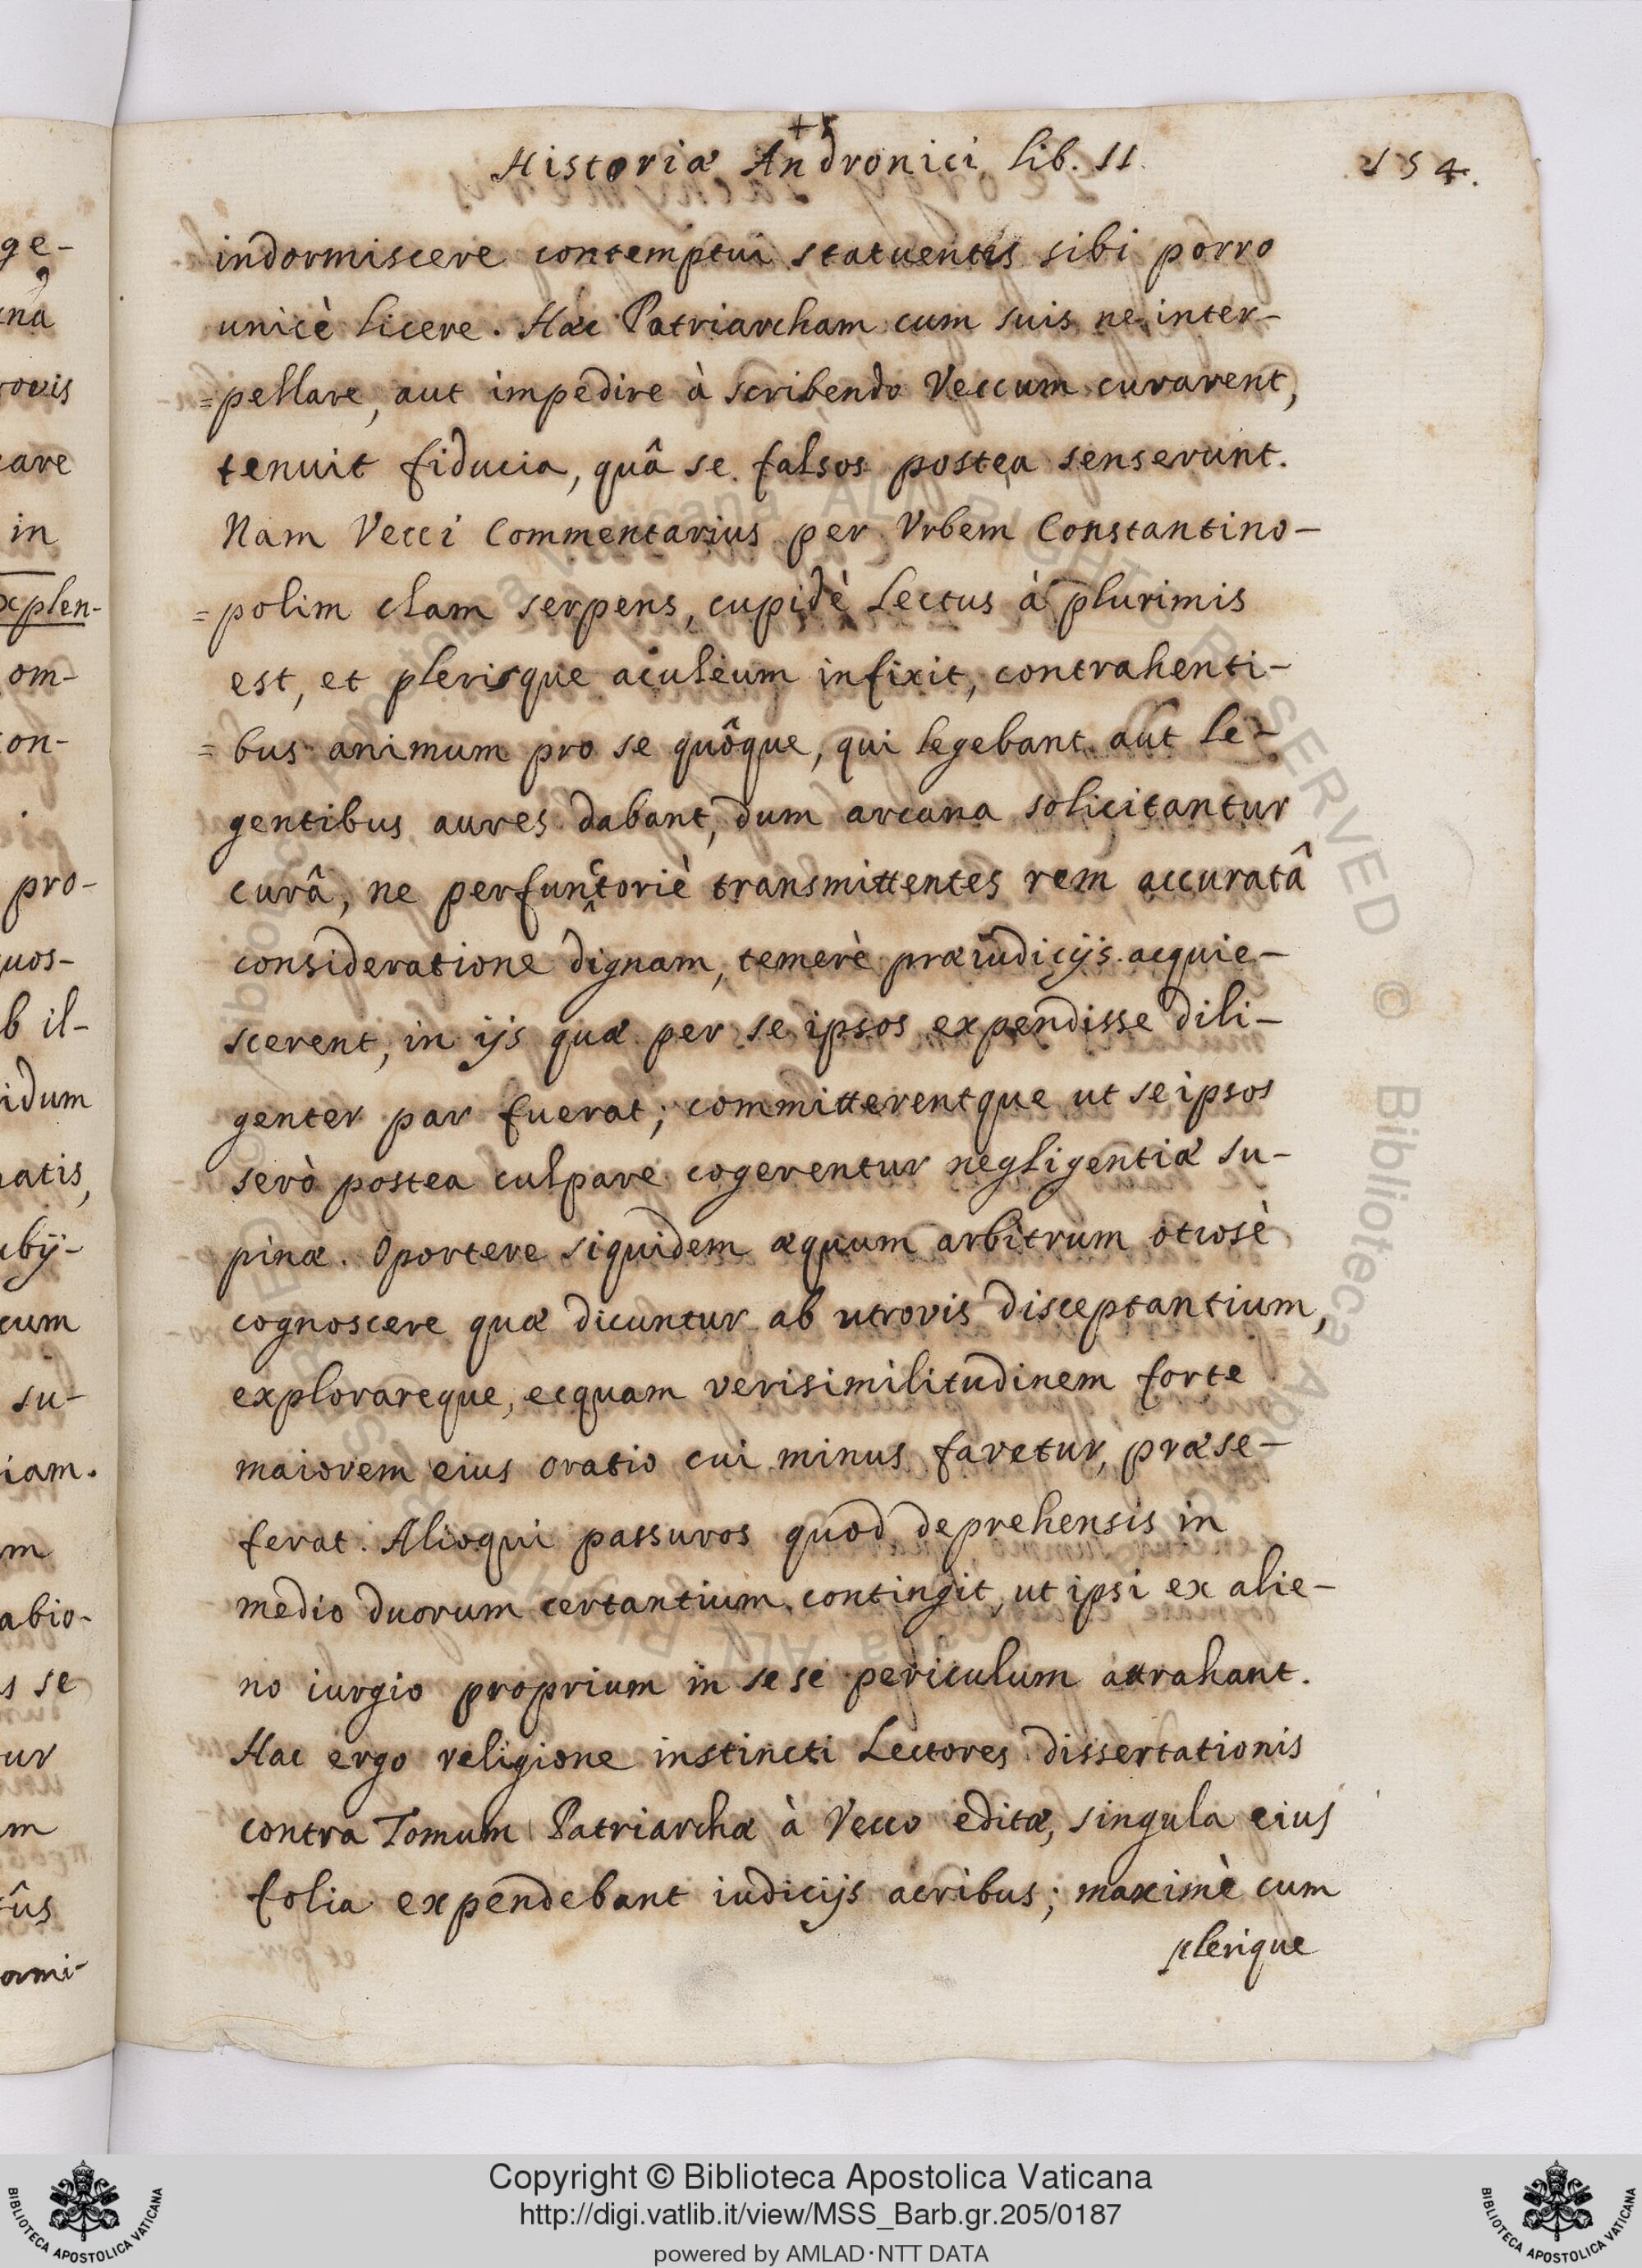 +5
Historiæ Andronici lib. II.
154.
indormiscere contemptui statuentis sibi porro
unicè licere. Hæc Patriarcham cum suis ne inter-
=pellare, aut impedire à scribendo Veccum curarent,
tenuit fiducia, quâ se falsos postea senserunt.
Nam Vecci Commentarius per Vrbem Constantino-
=polim clam serpens, cupidè lectus à plurimis
est, et plerisque aculeum infixit, contrahenti-
=bus animum pro se quôque, qui legebant aut le-
gentibus aures dabant, dum arcana solicitantur
curâ, ne perfunctoriè transmittentes rem accuratâ
consideratione dignam, temerè præiudicijs acquie-
scerent, in ijs quæ per se ipsos expendisse dili-
genter par fuerat; committerentque ut se ipsos
serò postea culpare cogerentur negligentiæ su-
pinæ. Oportere siquidem æquum arbitrum otiosè
cognoscere quæ dicuntur ab utrovis disceptantium,
explorareque, ecquam verisimilitudinem forte
maiorem eius oratio cui minus favetur, præse-
ferat. Alioqui passuros quod deprehensis in
medio duorum certantium contingit, ut ipsi ex alie-
no iurgio proprium in sese periculum attrahant.
Hac ergo religione instincti Lectores dissertationis
contra Tomum Patriarchæ à Vecco editæ, singula eius
folia expendebant iudicijs acribus; maximè cum
plerique
ge-
rovis
in
xplen-
om-
on-
pro-
quos-
b il-
idum
atis,
cum
su-
iam.
m
abio-
s se
ur
m
ûs
Copyright © Biblioteca Apostolica Vaticana
http://digi.vatlib.it/view/MSS_Barb.gr.205/0187
powered by AMLAD·NTT DATA
BIBLIOTECA APOSTOLICA VATICANA
BIBLIOTECA APOSTOLICA VATICANA